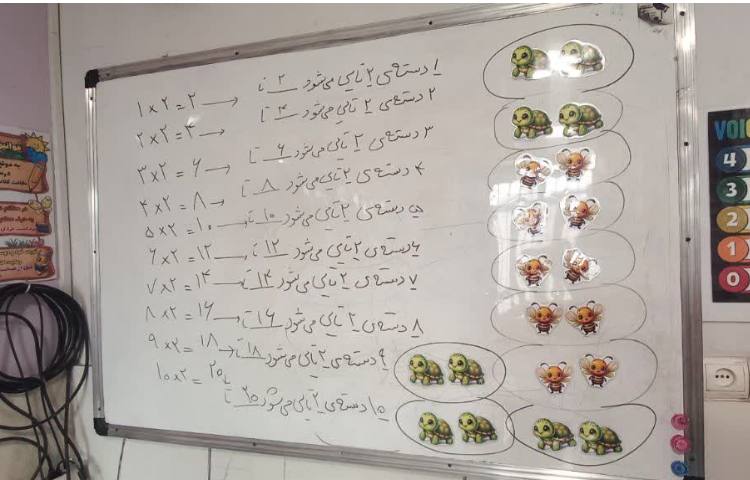 ۱ دسته‌ی ۲ تایی می‌شود ۲ تا
۱ × ۲ = ۲ →
۲ دسته‌ی ۲ تایی می‌شود ۴ تا
۲ × ۲ = ۴ →
۳ دسته‌ی ۲ تایی می‌شود ۶ تا
۳ × ۲ = ۶ →
۴ دسته‌ی ۲ تایی می‌شود ۸ تا
۴ × ۲ = ۸ →
۵ دسته‌ی ۲ تایی می‌شود ۱۰ تا
۵ × ۲ = ۱۰ →
۶ دسته‌ی ۲ تایی می‌شود ۱۲ تا
۶ × ۲ = ۱۲ →
۷ دسته‌ی ۲ تایی می‌شود ۱۴ تا
۷ × ۲ = ۱۴ →
۸ دسته‌ی ۲ تایی می‌شود ۱۶ تا
۸ × ۲ = ۱۶ →
۹ دسته‌ی ۲ تایی می‌شود ۱۸ تا
۹ × ۲ = ۱۸ →
۱۰ دسته‌ی ۲ تایی می‌شود ۲۰ تا
۱۰ × ۲ = ۲۰
VOI
4
3
2
1
0